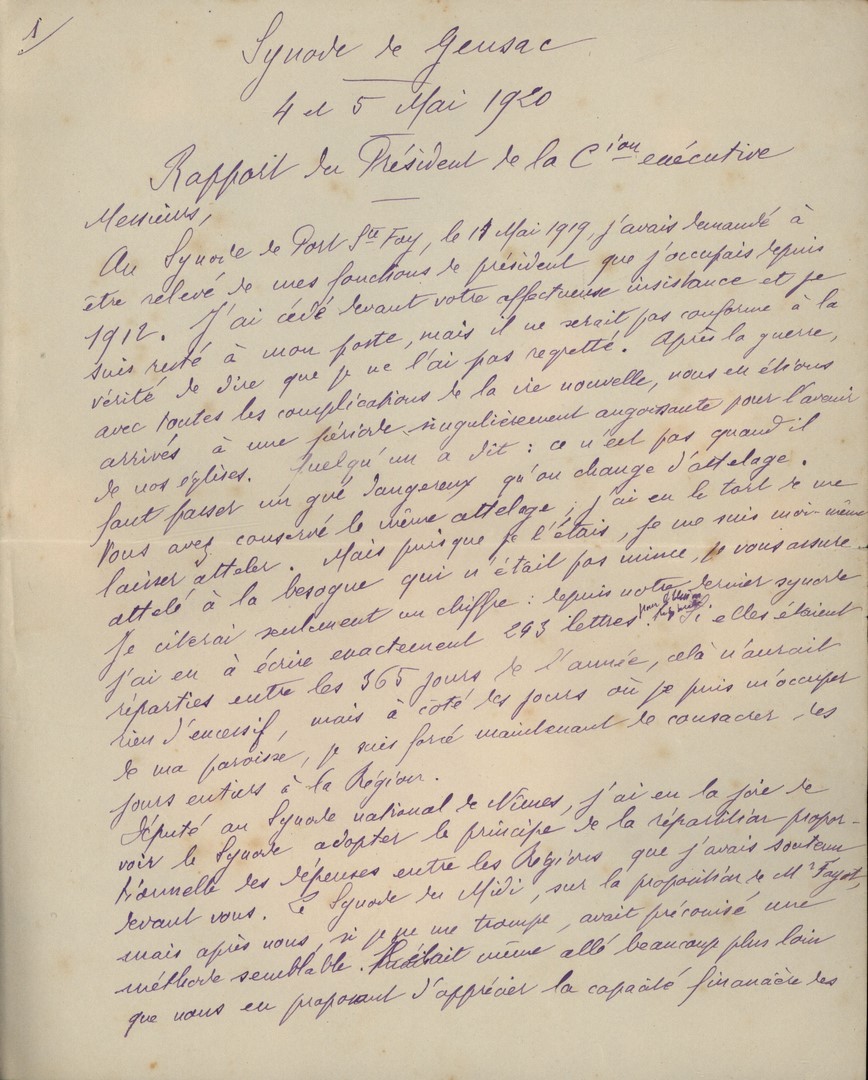 1/
Synode de Gensac
4 et 5 Mai 1920
Rapport du Président de la Cion exécutive
Messieurs,
Au Synode de Port Ste Foy, le 11 Mai 1919, j'avais demandé à
être relevé de mes fonctions de président que j'occupais depuis
1912. J'ai cédé devant votre affectueuse insistance et je
suis resté à mon poste, mais il ne serait pas conforme à la
vérité de dire que je ne l'ai pas regretté. Après la guerre,
avec toutes les complications de la vie nouvelle, nous en étions
arrivés à une période singulièrement angoissante pour l'avenir
de nos églises. Quelqu'un a dit : ce n'est pas quand il
faut passer un gué dangereux qu'on change d'attelage.
Vous avez conservé le même attelage ; j'ai eu le tort de me
laisser atteler. Mais puisque je l'étais, je me suis moi-même
attelé à la besogne qui n'était pas mince, je vous assure.
Je citerai seulement un chiffre : depuis notre dernier synode
j'ai eu à écrire exactement 243 lettres. Si elles étaient
réparties entre les 365 jours de l'année, celà n'aurait
rien d'excessif, mais à côté des jours où je puis m'occuper
de ma paroisse, je suis forcé maintenant de consacrer des
jours entiers à la Région.
Député au Synode national de Nîmes, j'ai eu la joie de
voir le Synode adopter le principe de la répartition propor-
tionnelle des dépenses entre les Régions que j'avais soutenu
devant vous. Le Synode du Midi, sur la proposition de Mr Fayot,
mais après nous, si je ne me trompe, avait préconisé une
méthode semblable. Il était même allé beaucoup plus loin
que nous en proposant d'apprécier la capacité financière des